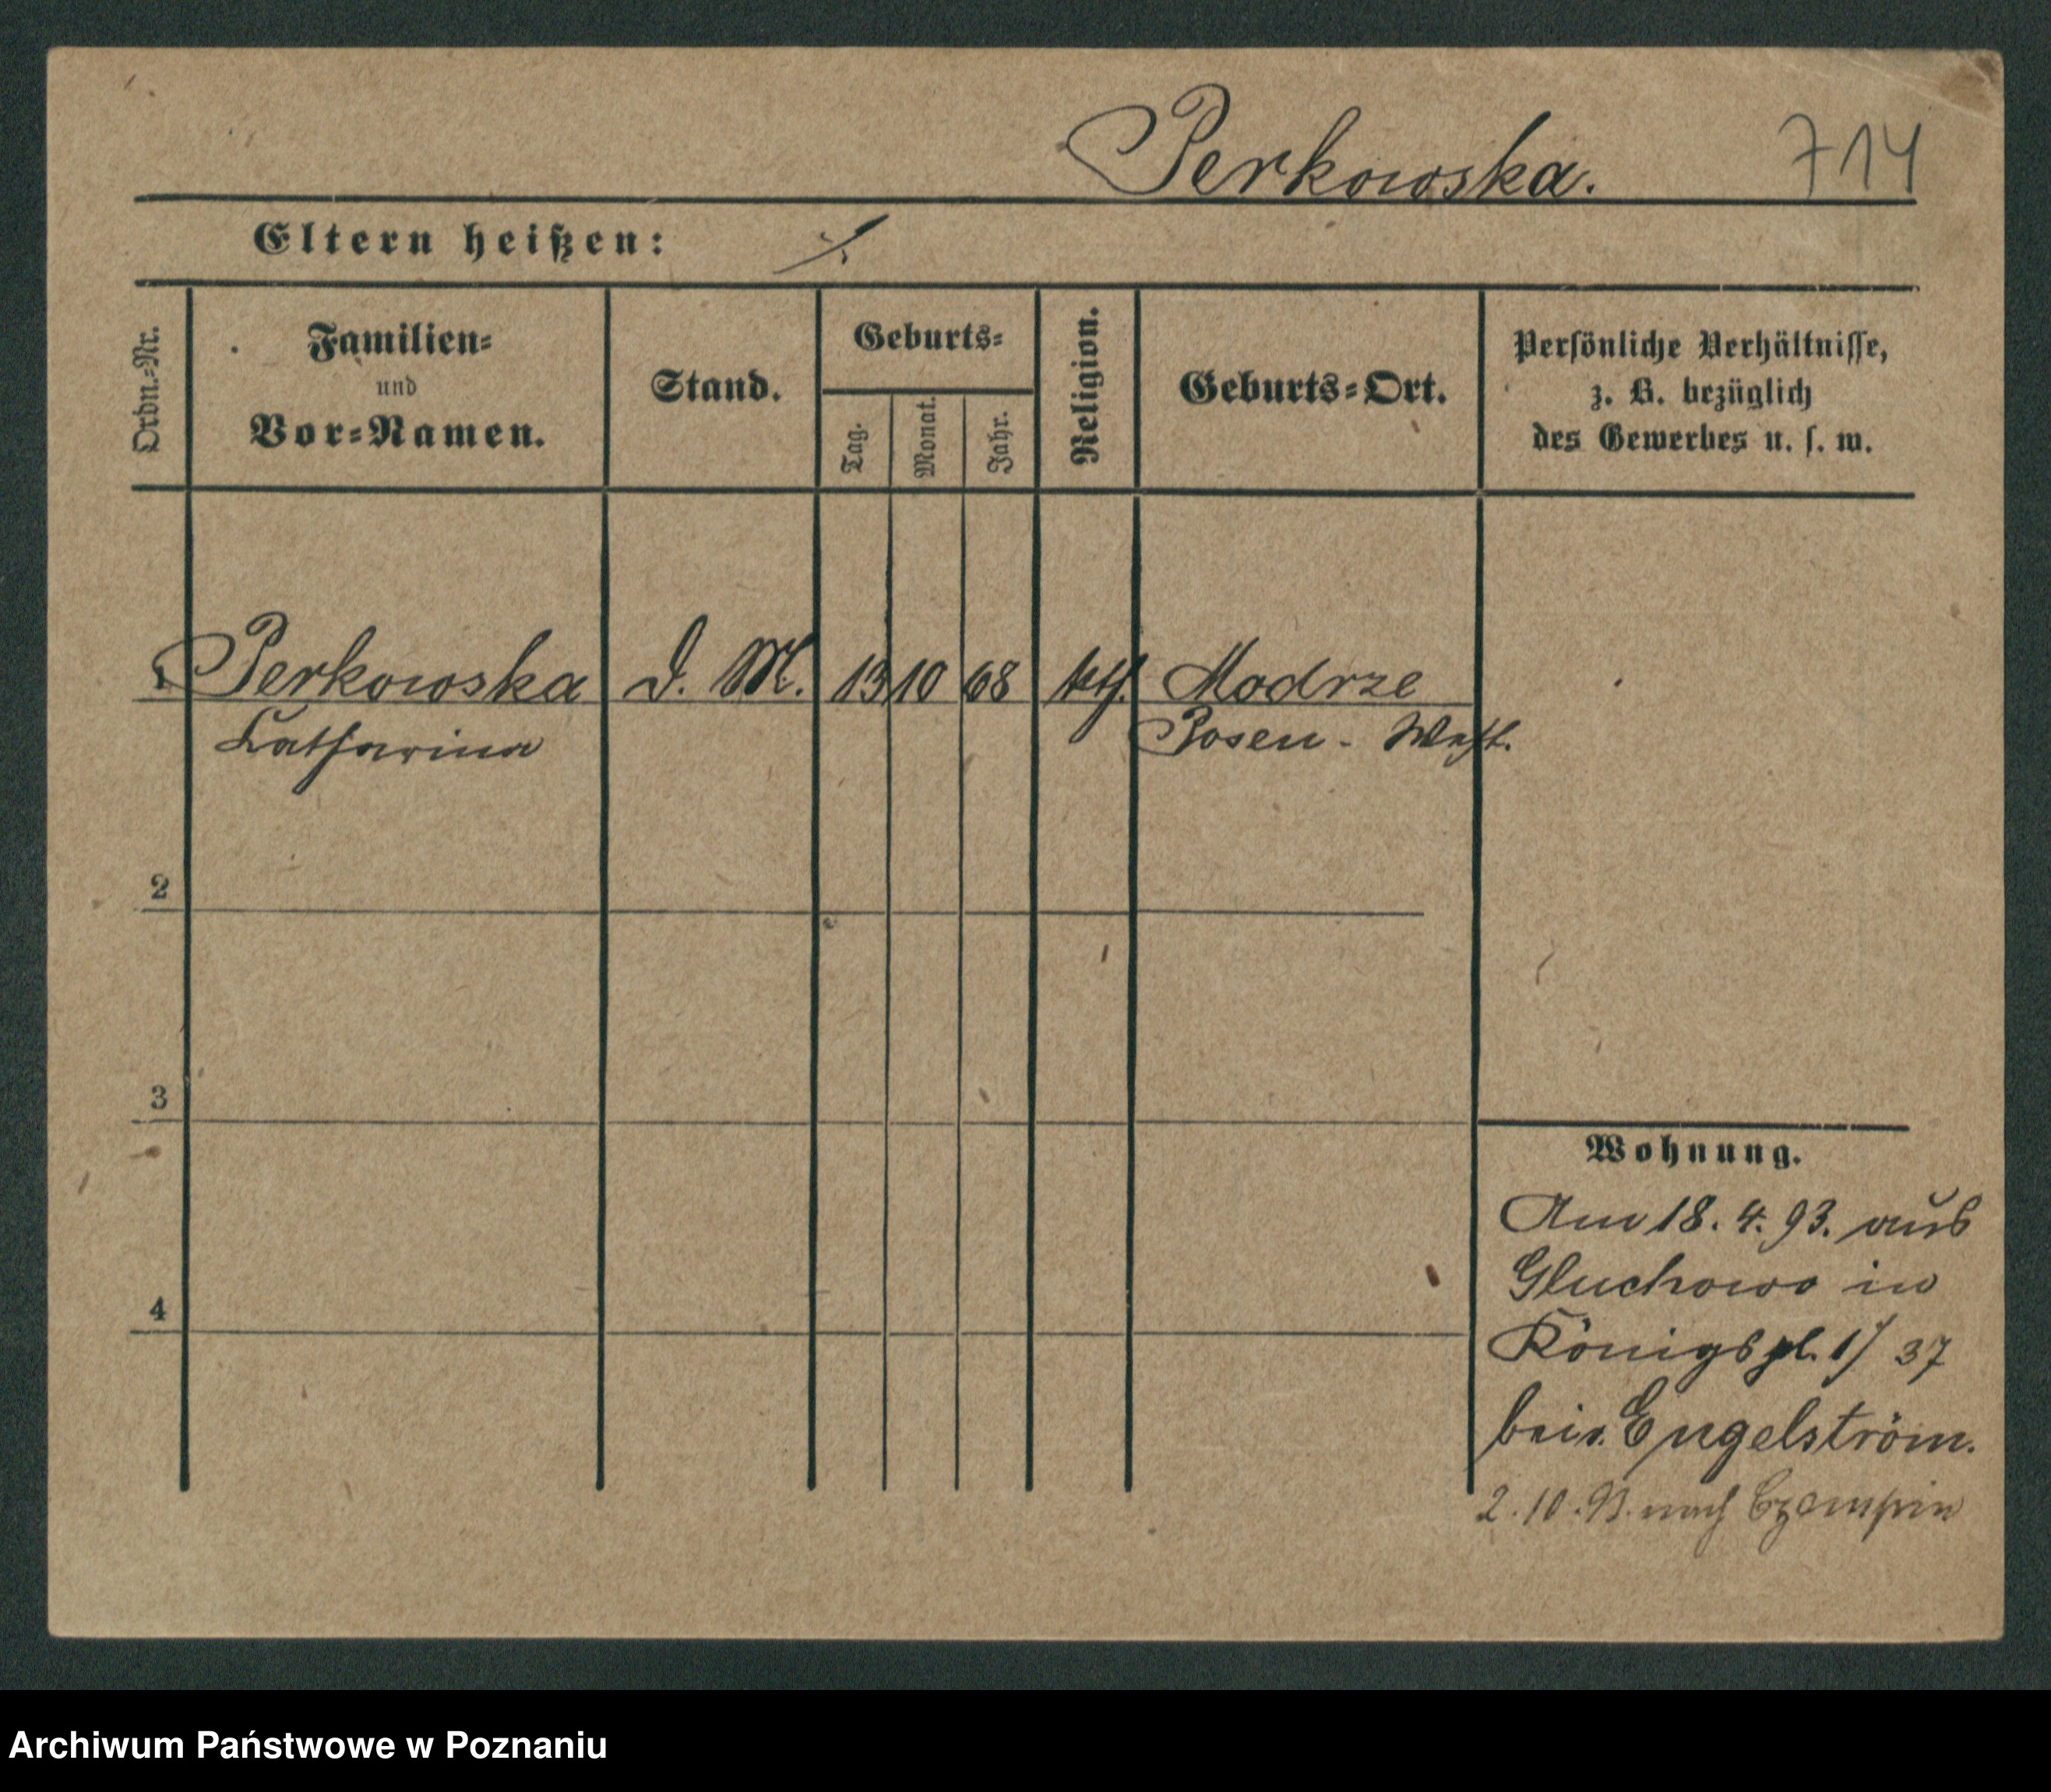 Perkowska.
714
Eltern heißen: ./.
Ordn.-Nr.
Familien-
und
Vor-Namen.
Stand.
Geburts-
Tag.
Monat.
Jahr.
Religion.
Geburts-Ort.
Persönliche Verhältnisse,
z. B. bezüglich
des Gewerbes u. s. w.
1 Perkowska D. M. 13 10 68 kth. Modrze
Catharina Posen - West.
2
3
4
Wohnung.
Am 18. 4. 93. aus
Gluchowo in
Königspl. 1/ 37
bei v. Engelström.
2. 10. 93. nach Czempin
Archiwum Państwowe w Poznaniu